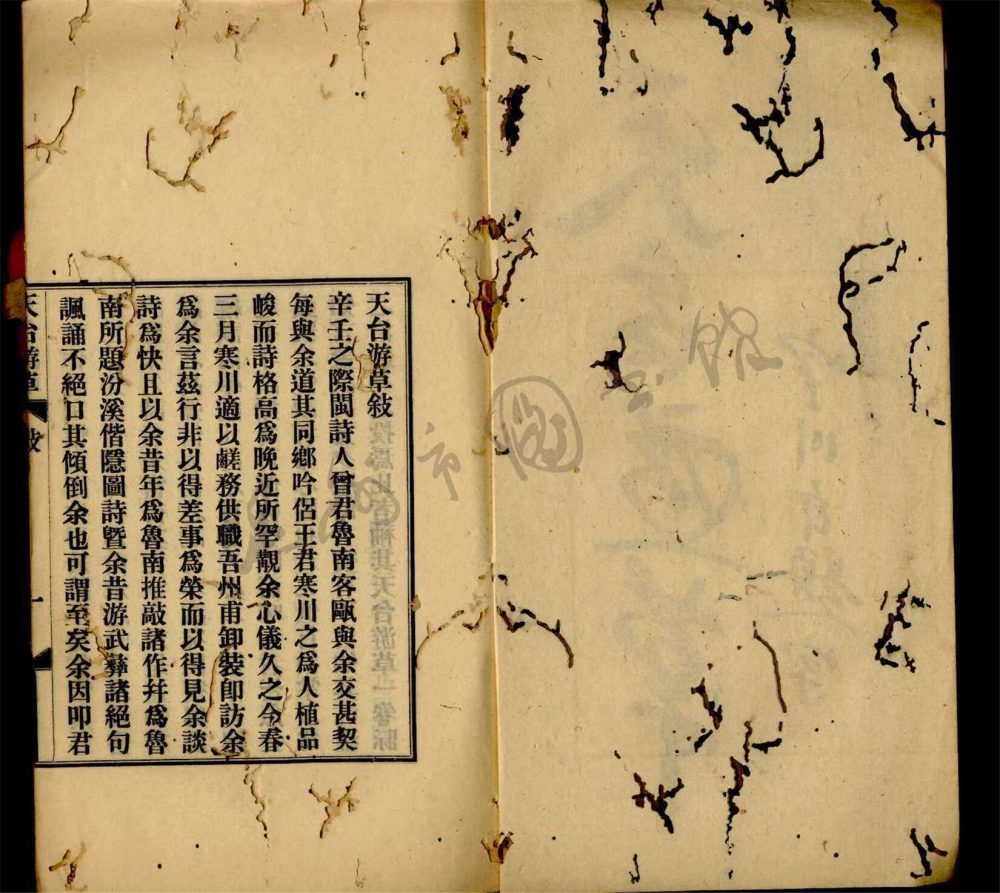 天台游草敍
辛壬之際閩詩人曾君魯南客甌與余交甚契
每與余道其同鄉吟侶王君寒川之爲人植品
峻而詩格高爲晚近所罕觀余心儀久之今春
三月寒川適以鹺務供職吾州甫卸裝卽訪余
爲余言茲行非以得差事爲榮而以得見余談
詩爲快且以余昔年爲魯南推敲諸作幷爲魯
南所題汾溪偕隱圖詩曁余昔游武彝諸絕句
諷誦不絕口其傾倒余也可謂至矣余因叩君
天台游草 敍 一
市圖
館